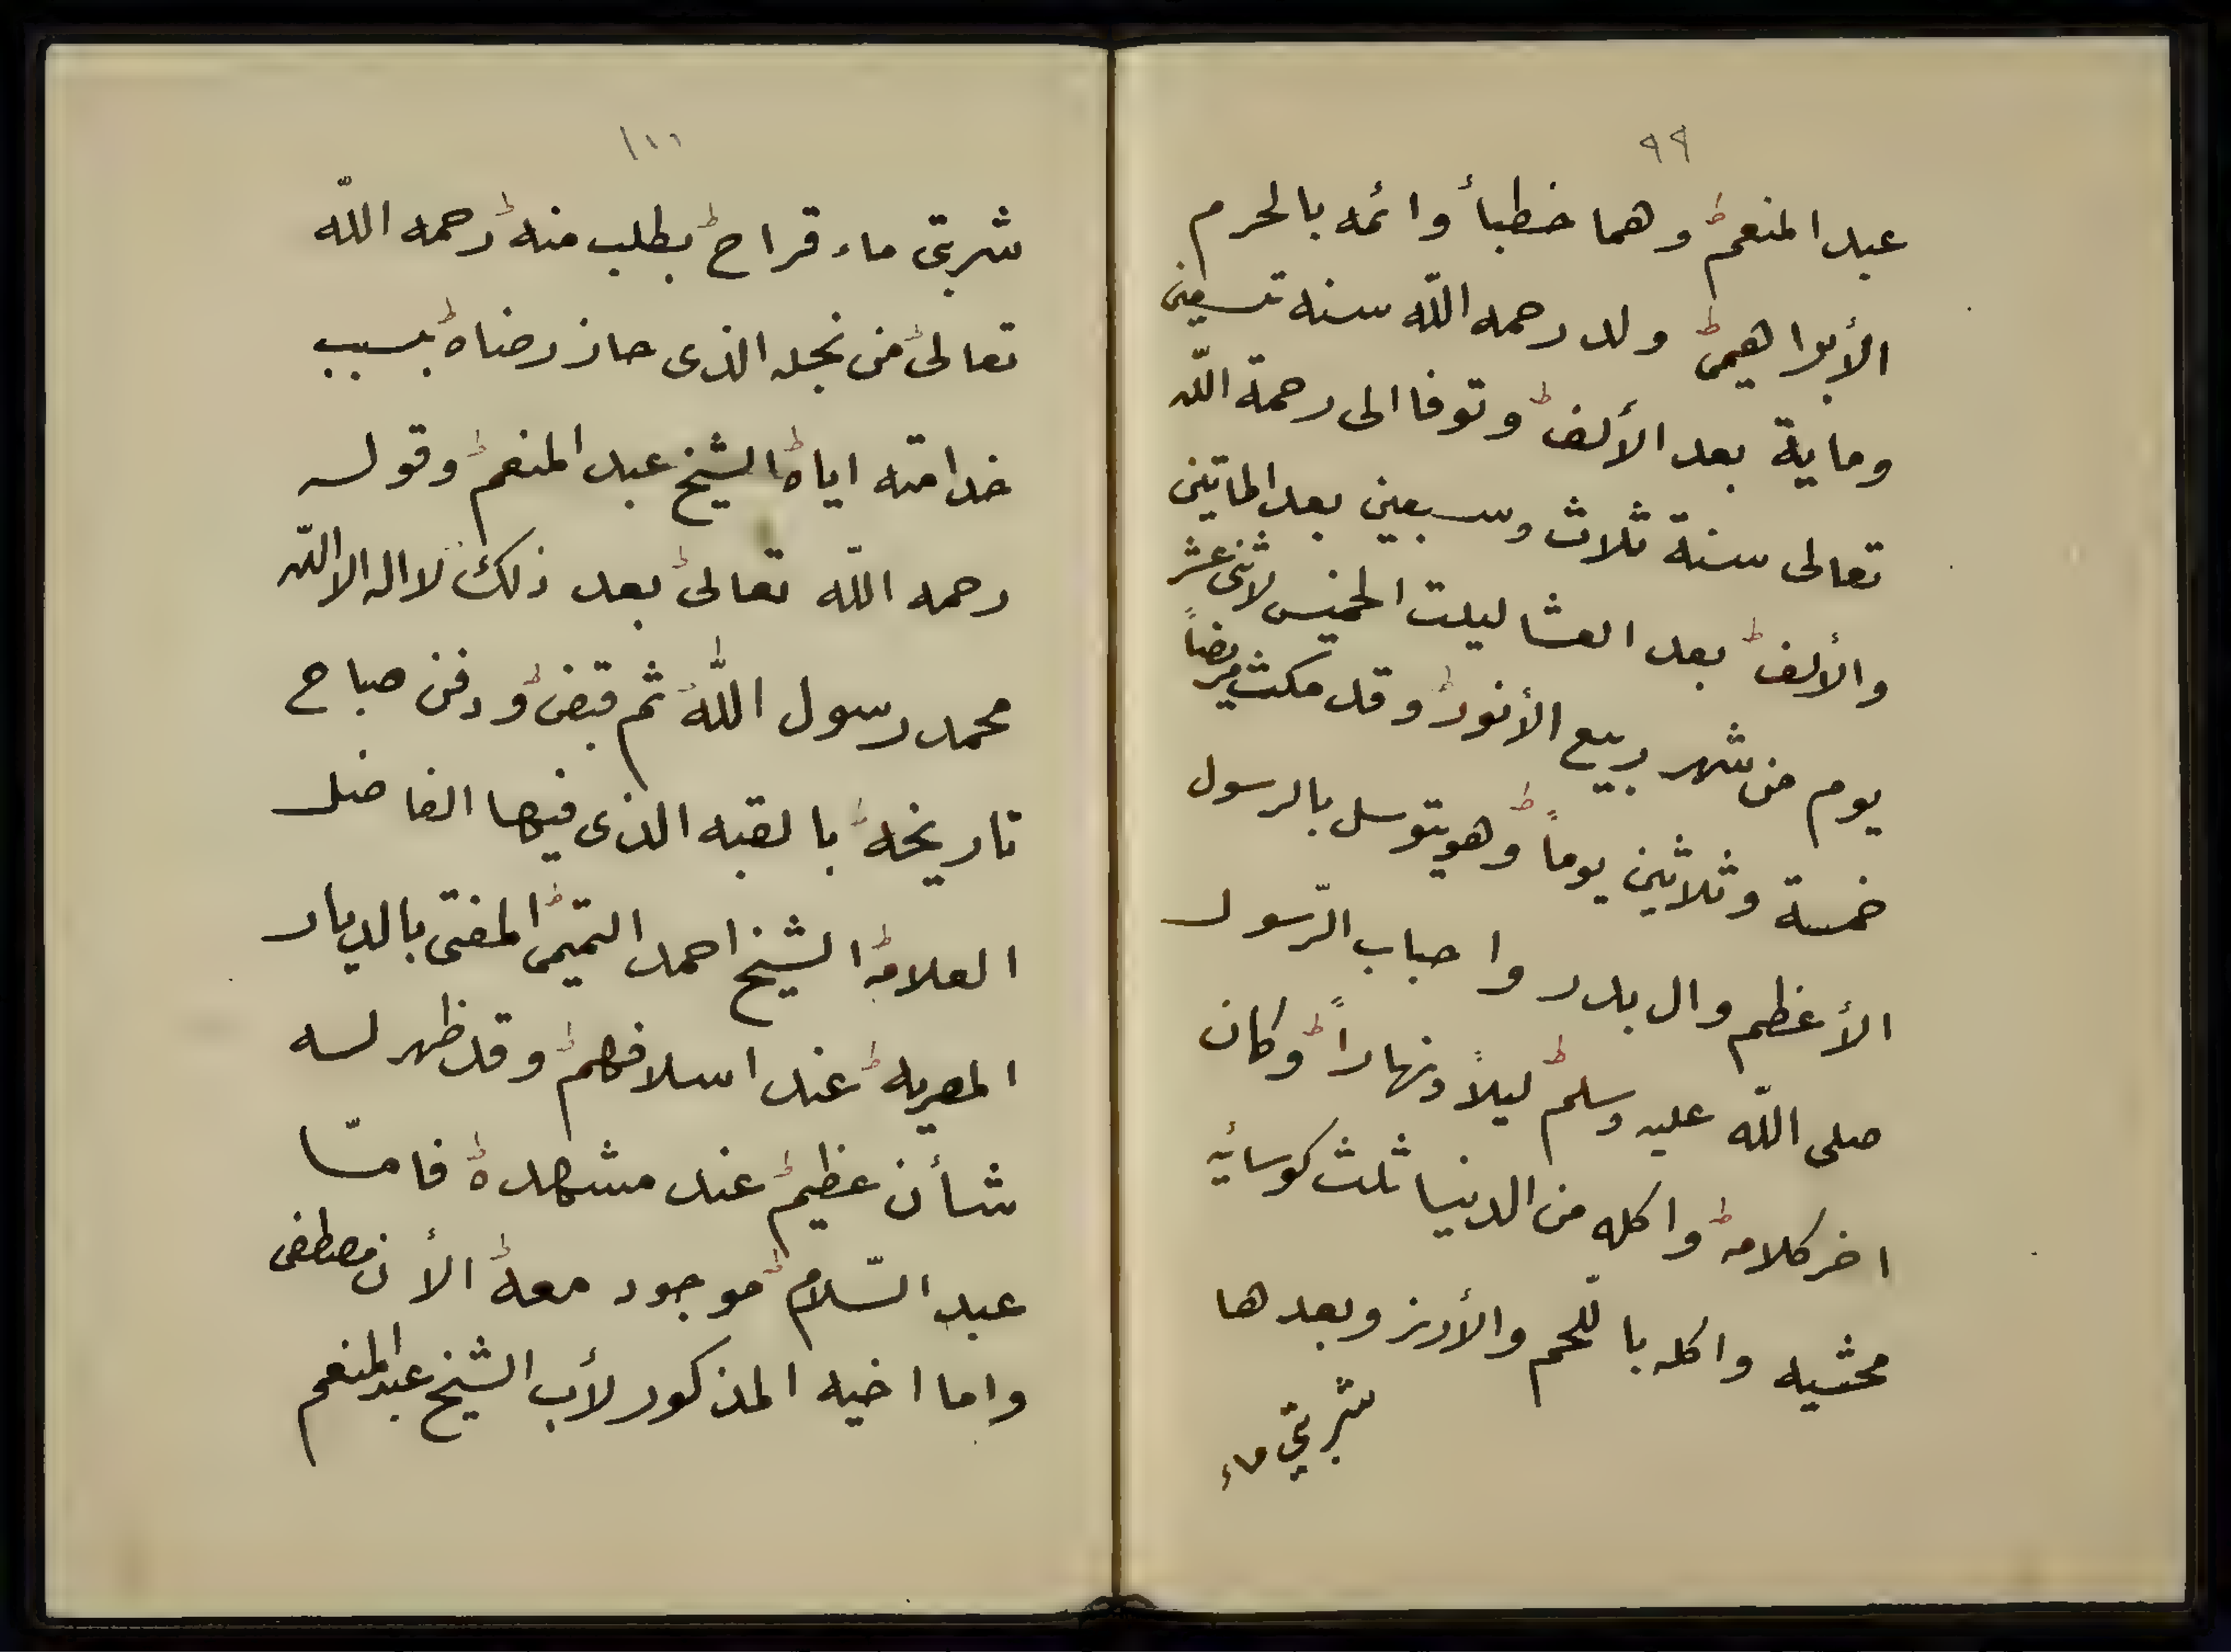 ٩٩
عبد المنعم وهما خطبأ وائمه بالحرم
الأبراهيمى ولد رحمه اللّه سنه تسعين
وماية بعد الألف وتوفا الى رحمة اللّه
تعالى سنة ثلاث وسبعين بعد الماتين
والألف بعد العشا ليلت الخميس لاثنى عشر
يوم من شهر ربيع الأنور وقد مكث مريضاً
خمسة وثلاثين يوماً وهو يتوسل بالرسول
الأعظم وال بدر واحباب الرّسول
صلى اللّه عليه وسلم ليلاً ونهاراً وكان
اخر كلامه واكله من الدنيا ثلث كوسائه
محشيه واكله باللّحم والأرز وبعدها
شربتي ماء
١٠٠
شربتى ماء قراح بطلب منه رحمه اللّه
تعالى من نجله الذى حاز رضاه بسبب
خدامته اياه الشيخ عبد المنعم وقوله
رحمه اللّه تعالى بعد ذلك لا اله الا اللّه
محمد رسول اللّه ثم قبض ودفن صباح
تاريخه بالقبه الذى فيها الفاضل
العلامه الشيخ احمد التميمى المفتى بالديار
المصريه عند اسلافهم وقد ظهر له
شأن عظيم عند مشهده فامّا
عبد السّلام موجود معه الأن مصطفى
واما اخيه المذكور لأب الشيخ عبد المنعم